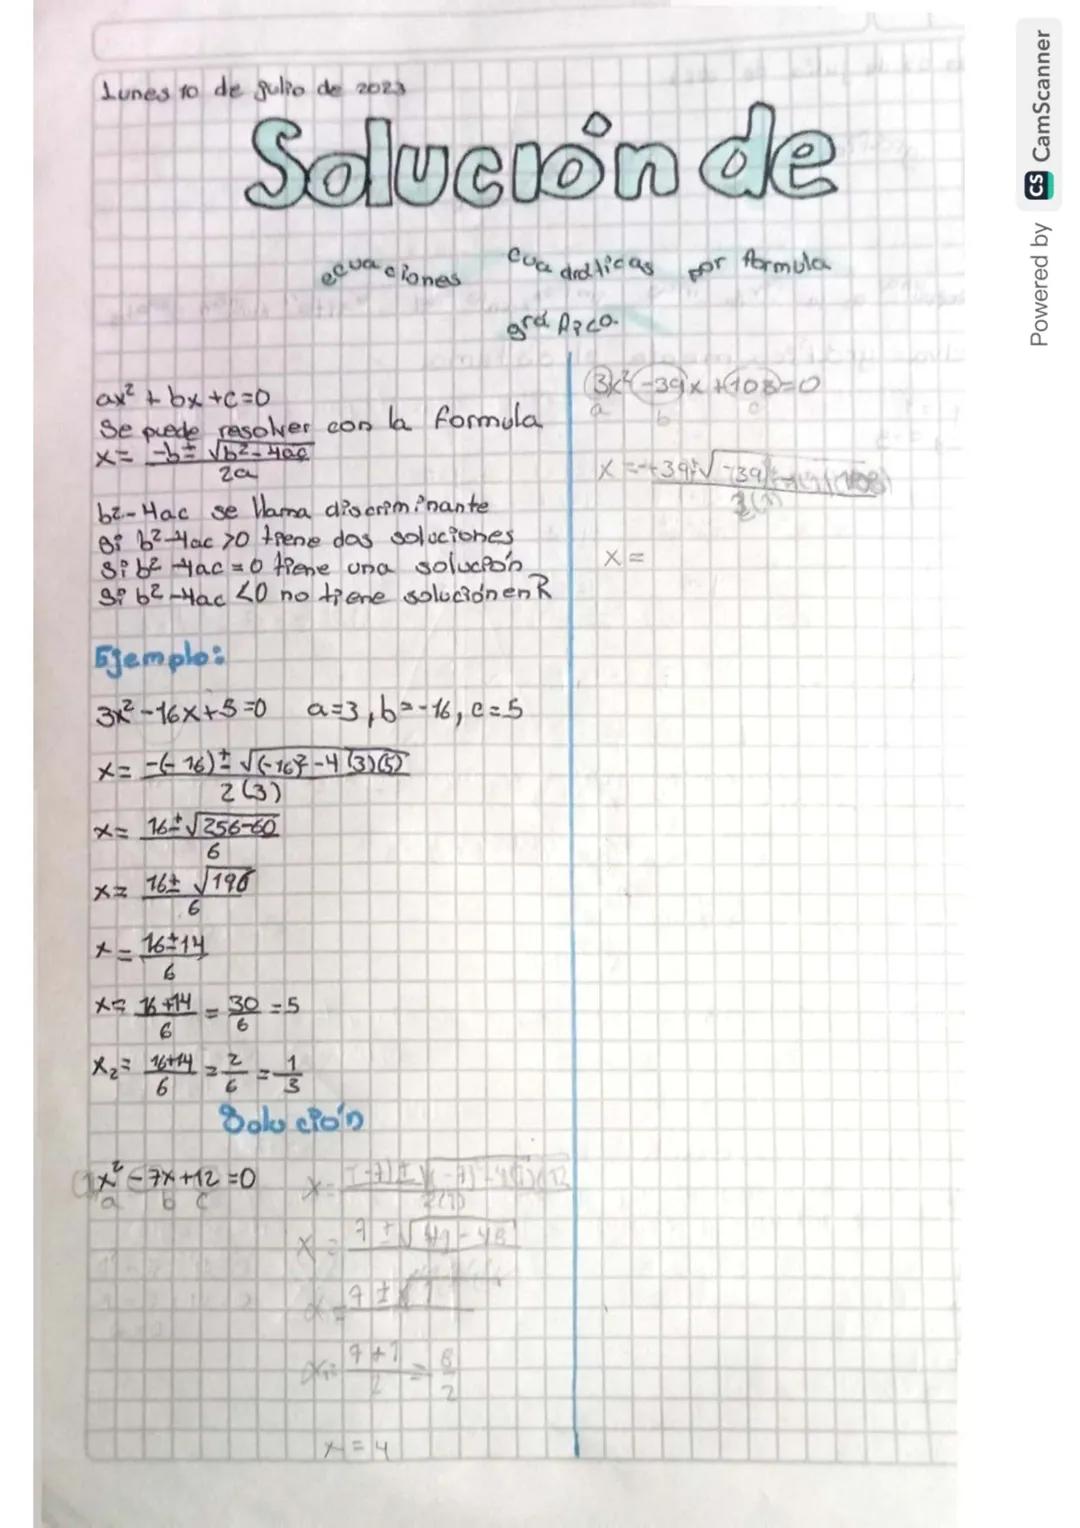 Lunes 10 de julio de 2023
Solución de
ecuaciones cuadráticas por formula
gráfica.
ax² + bx + c = 0
Se puede resolver con la formula
x = -b ± √b² - 4ac
2a
b² - 4ac se llama discriminante
Si b² - 4ac > 0 tiene dos soluciones
Si b² - 4ac = 0 tiene una solución
Si b² - 4ac < 0 no tiene solución en R
Ejemplo:
3x² - 16x + 5 = 0 a = 3, b = -16, c = 5
x = -(-16) ± √(-16)² - 4(3)(5)
2(3)
x = 16 ± √256-60
6
x = 16 ± √196
6
x = 16 ± 14
6
x = 16 + 14 = 30 = 5
6 6
x₂ = 16+14 = 2 = 1
6 6 3
Solución
1x² - 7x + 12 = 0
a b c
x = 7 ± √49 - 48
x₁ = 7 + 1 = 8
2 2
x = 4
3x² - 39x + 108 = 0
a b c
x =
Powered by CS CamScanner